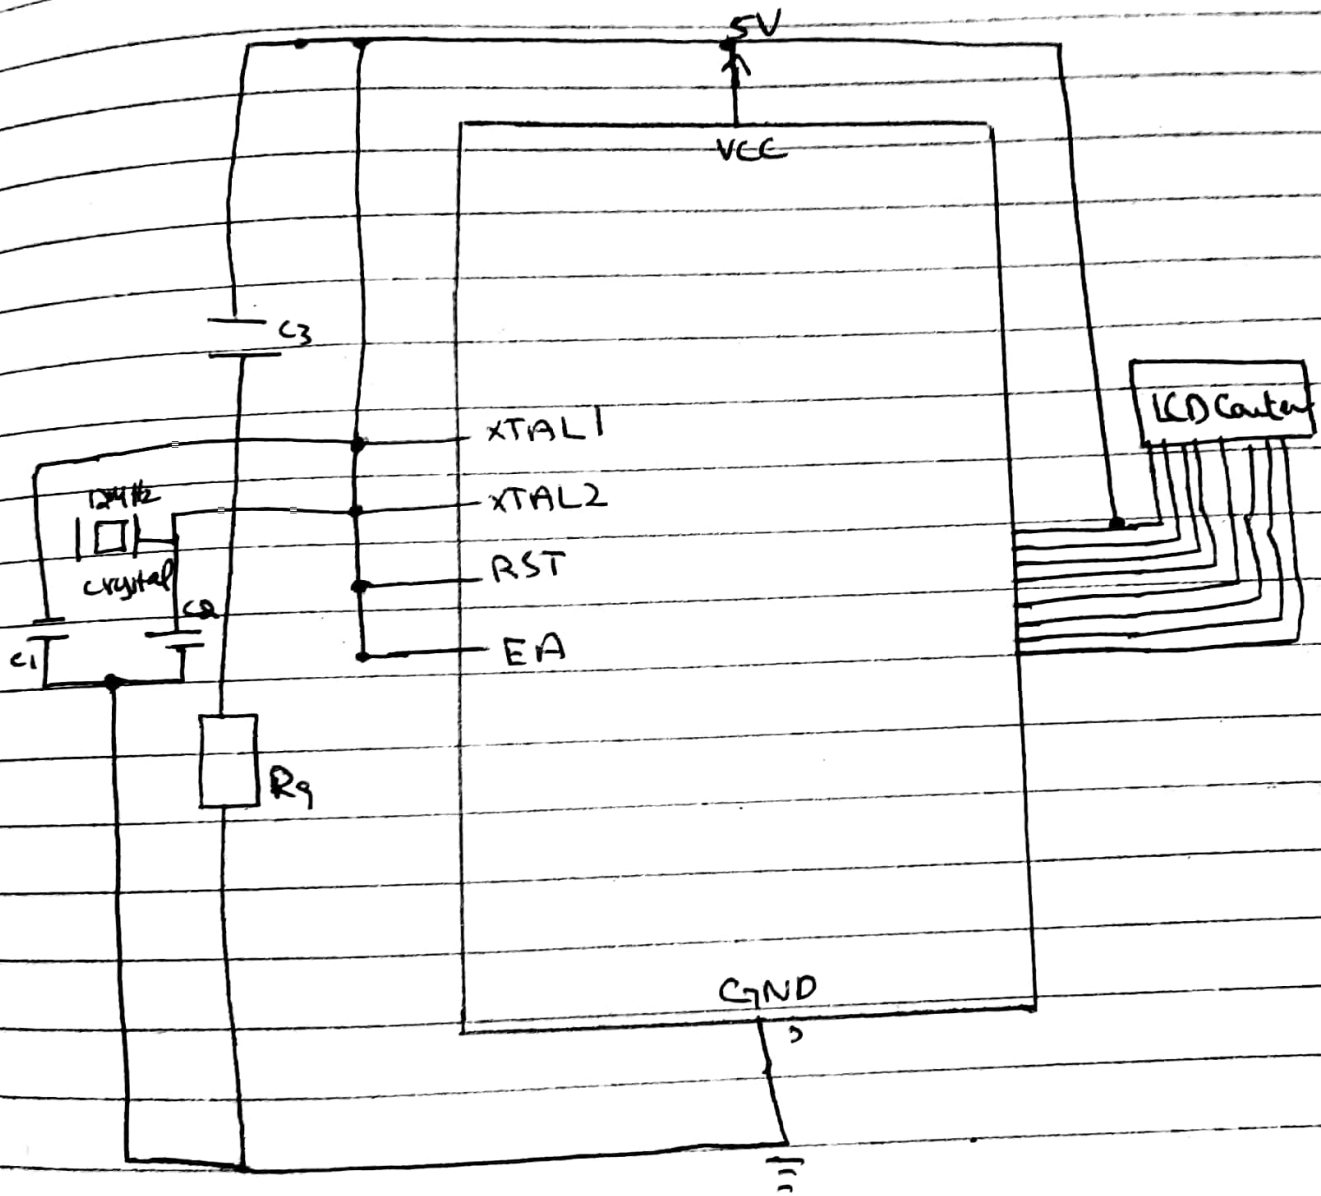 5V
VCC
C3
LCD
XTAL1
12MHz
XTAL2
crystal
RST
C2
C1
EA
R9
GND